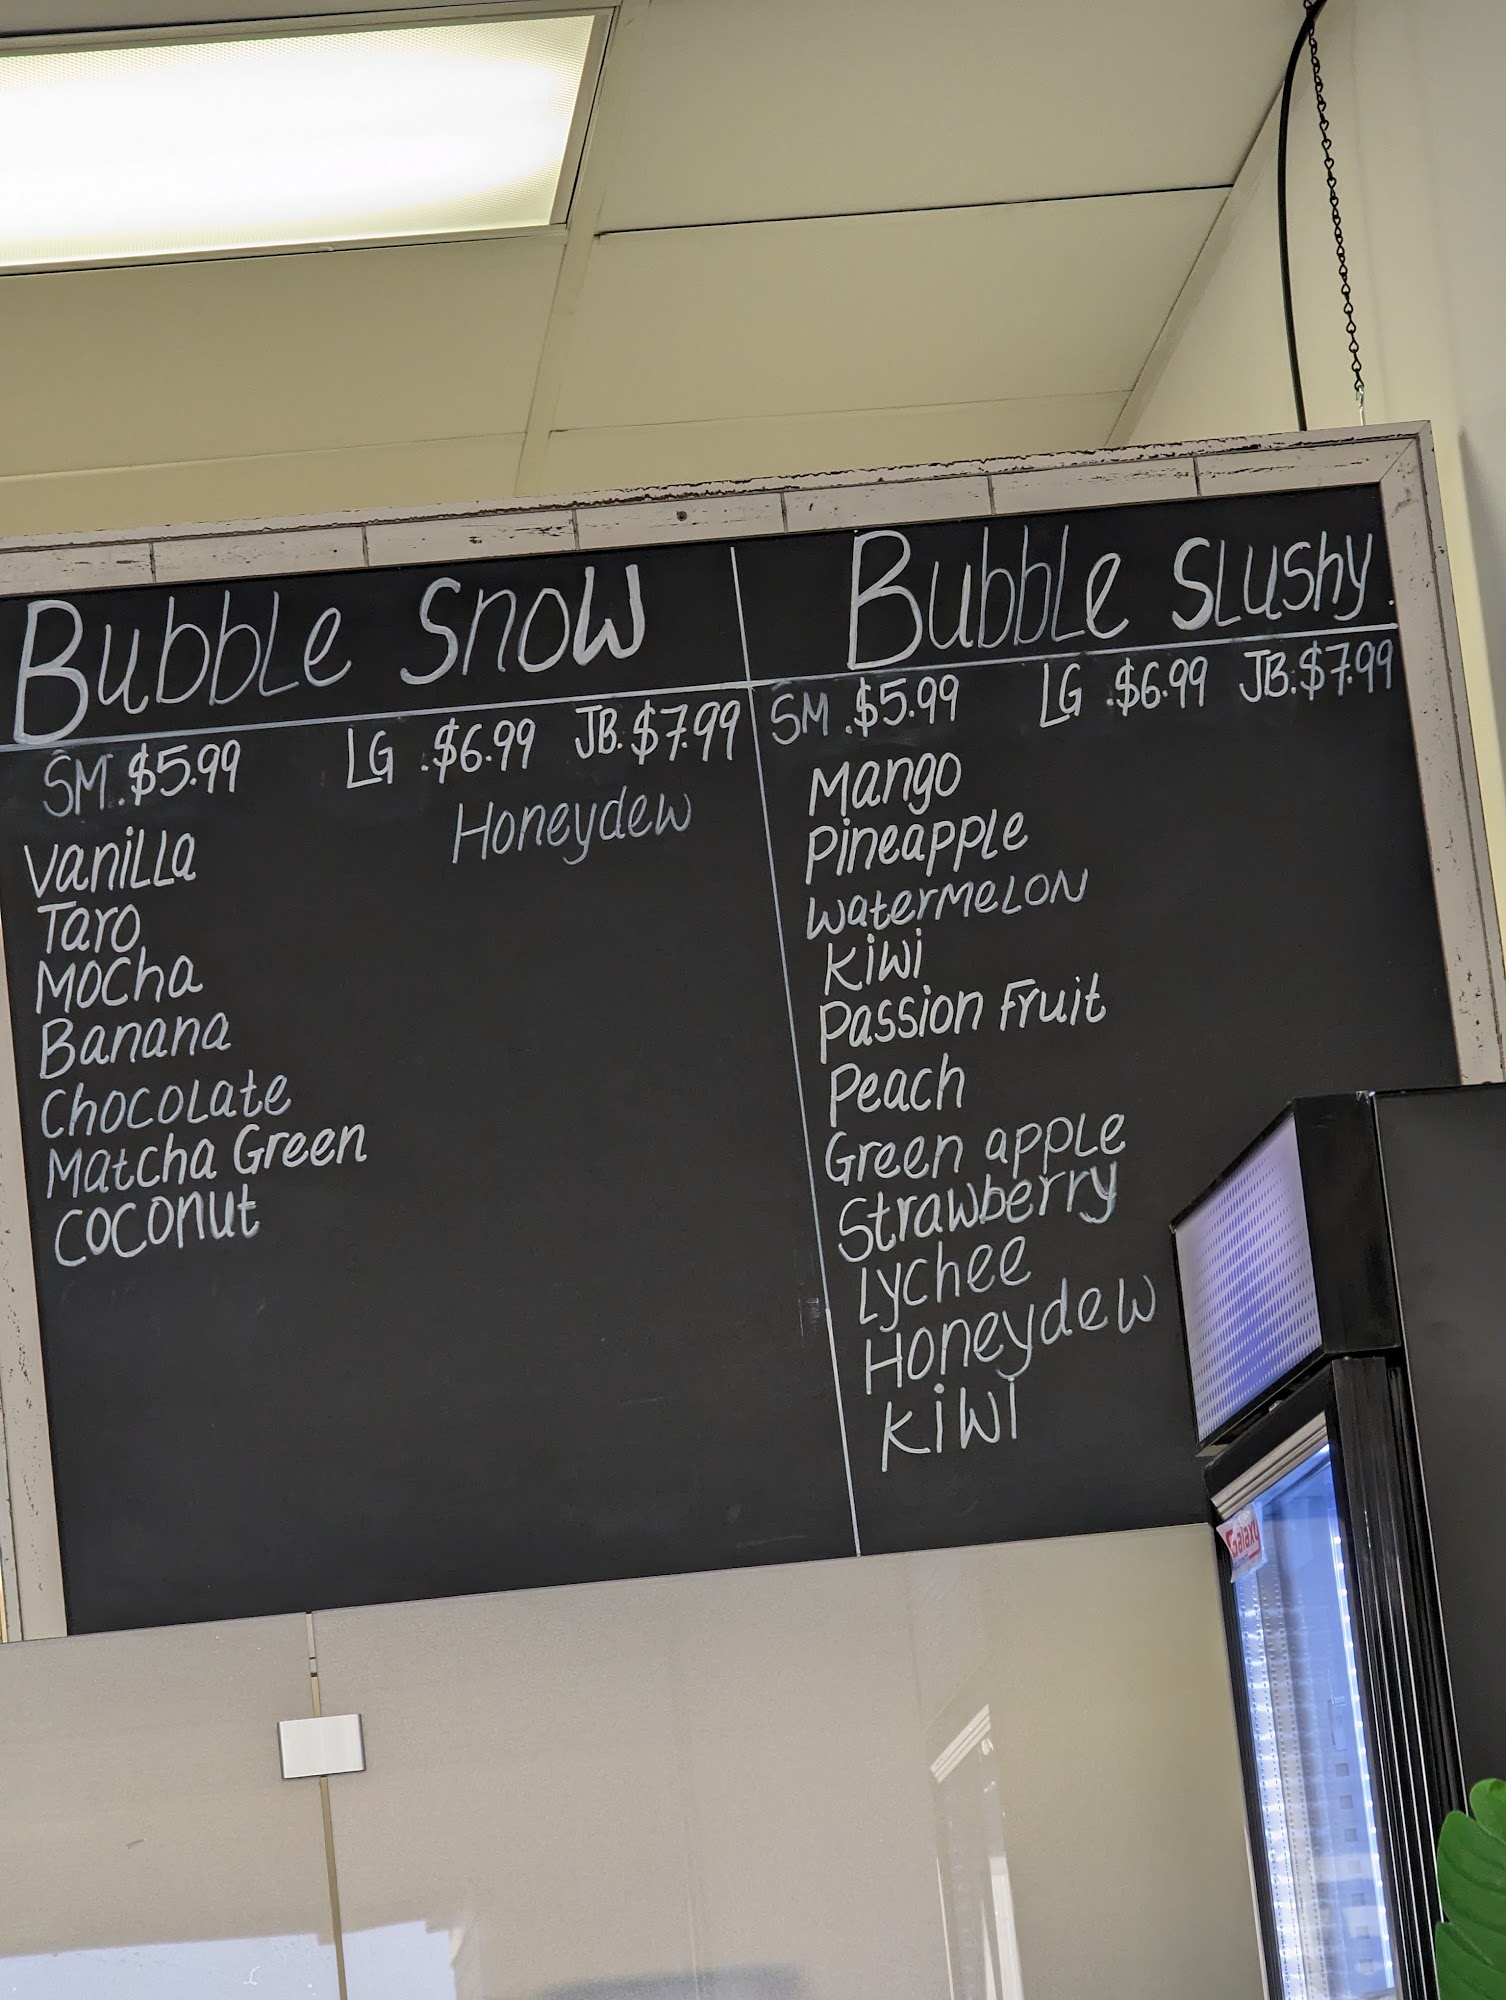 Bubble Snow
SM.$5.99 LG.$6.99 JB.$7.99
Honeydew
Vanilla
Taro
Mocha
Banana
Chocolate
Matcha Green
Coconut
Bubble Slushy.
SM.$5.99 LG.$6.99 JB.$7.99
Mango
Pineapple
Watermelon
Kiwi
Passion Fruit
Peach
Green apple
Strawberry
Lychee
Honeydew
Kiwi
Galaxy